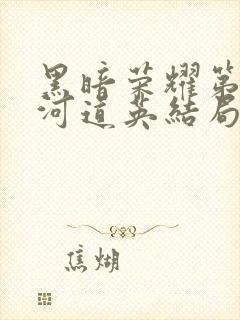 黑暗荣耀第
河道英结局
焦煳